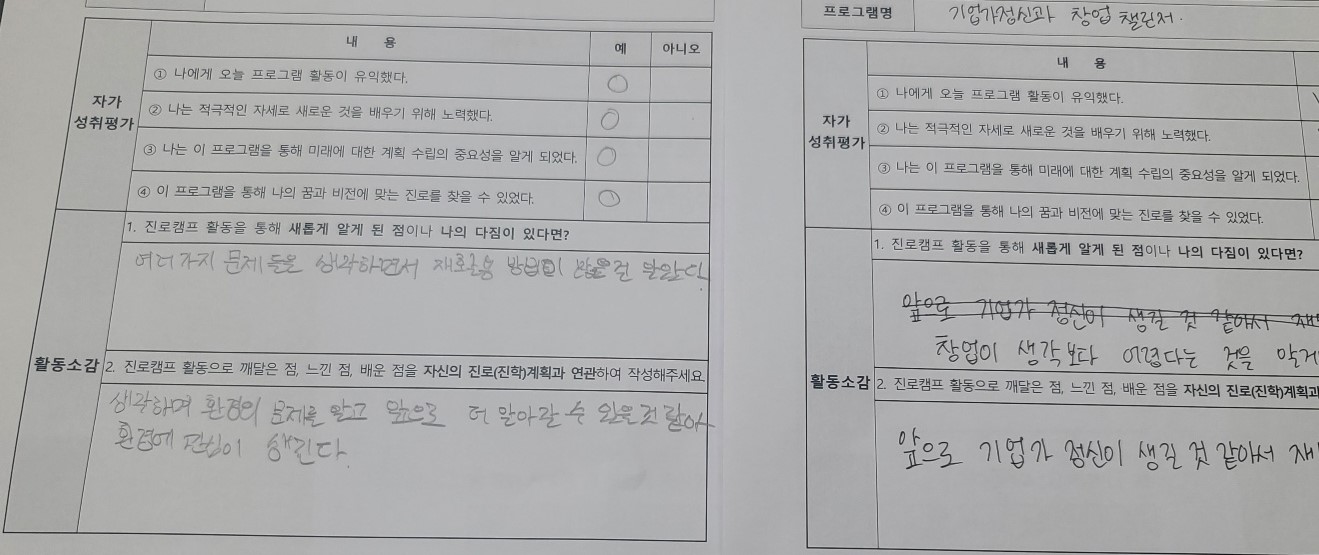 내 용 예 아니오
자가 성취평가
① 나에게 오늘 프로그램 활동이 유익했다. ○
② 나는 적극적인 자세로 새로운 것을 배우기 위해 노력했다. ○
③ 나는 이 프로그램을 통해 미래에 대한 계획 수립의 중요성을 알게 되었다. ○
④ 이 프로그램을 통해 나의 꿈과 비전에 맞는 진로를 찾을 수 있었다. ○
활동소감
1. 진로캠프 활동을 통해 새롭게 알게 된 점이나 나의 다짐이 있다면?
여러가지 문제들은 생각하면서 재활용 방법이 많은걸 알았다
2. 진로캠프 활동으로 깨달은 점, 느낀 점, 배운 점을 자신의 진로(진학)계획과 연관하여 작성해주세요.
생각하며 환경의 문제를 알고 앞으로 더 알아갈 수 있은것 같아
환경에 관심이 생긴다.
프로그램명 기업가정신과 창업 챌린저.
내 용
자가 성취평가
① 나에게 오늘 프로그램 활동이 유익했다.
② 나는 적극적인 자세로 새로운 것을 배우기 위해 노력했다.
③ 나는 이 프로그램을 통해 미래에 대한 계획 수립의 중요성을 알게 되었다.
④ 이 프로그램을 통해 나의 꿈과 비전에 맞는 진로를 찾을 수 있었다.
활동소감
1. 진로캠프 활동을 통해 새롭게 알게 된 점이나 나의 다짐이 있다면?
앞으로 기업가 정신이 생길 것 같아서 재
창업이 생각보다 어렵다는 것을 알게
2. 진로캠프 활동으로 깨달은 점, 느낀 점, 배운 점을 자신의 진로(진학)계획과
앞으로 기업가 정신이 생길 것 같아서 재